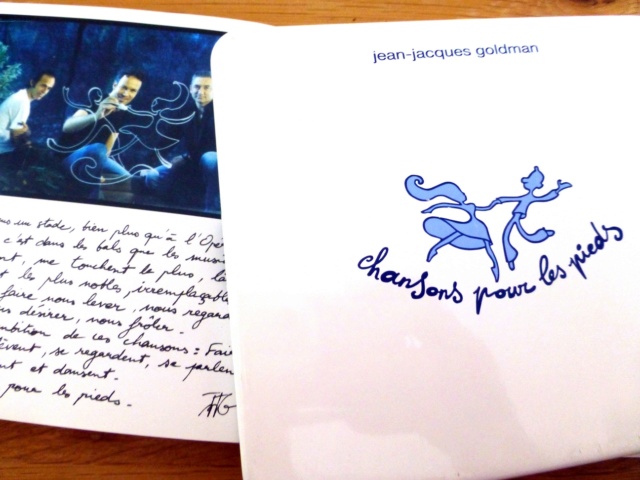 un stade, bien plus qu'à l'Opé
c'est dans les bals que les musi
nt, me touchent le plus, la
t les plus nobles, irremplaçable
faire nous lever, nous regar
us désirer, nous frôler.
mbition de ces chansons : Fair
lèvent, se regardent, se parlen
nt et dansent.
pour les pieds.
JJG
jean-jacques goldman
chansons pour les pieds